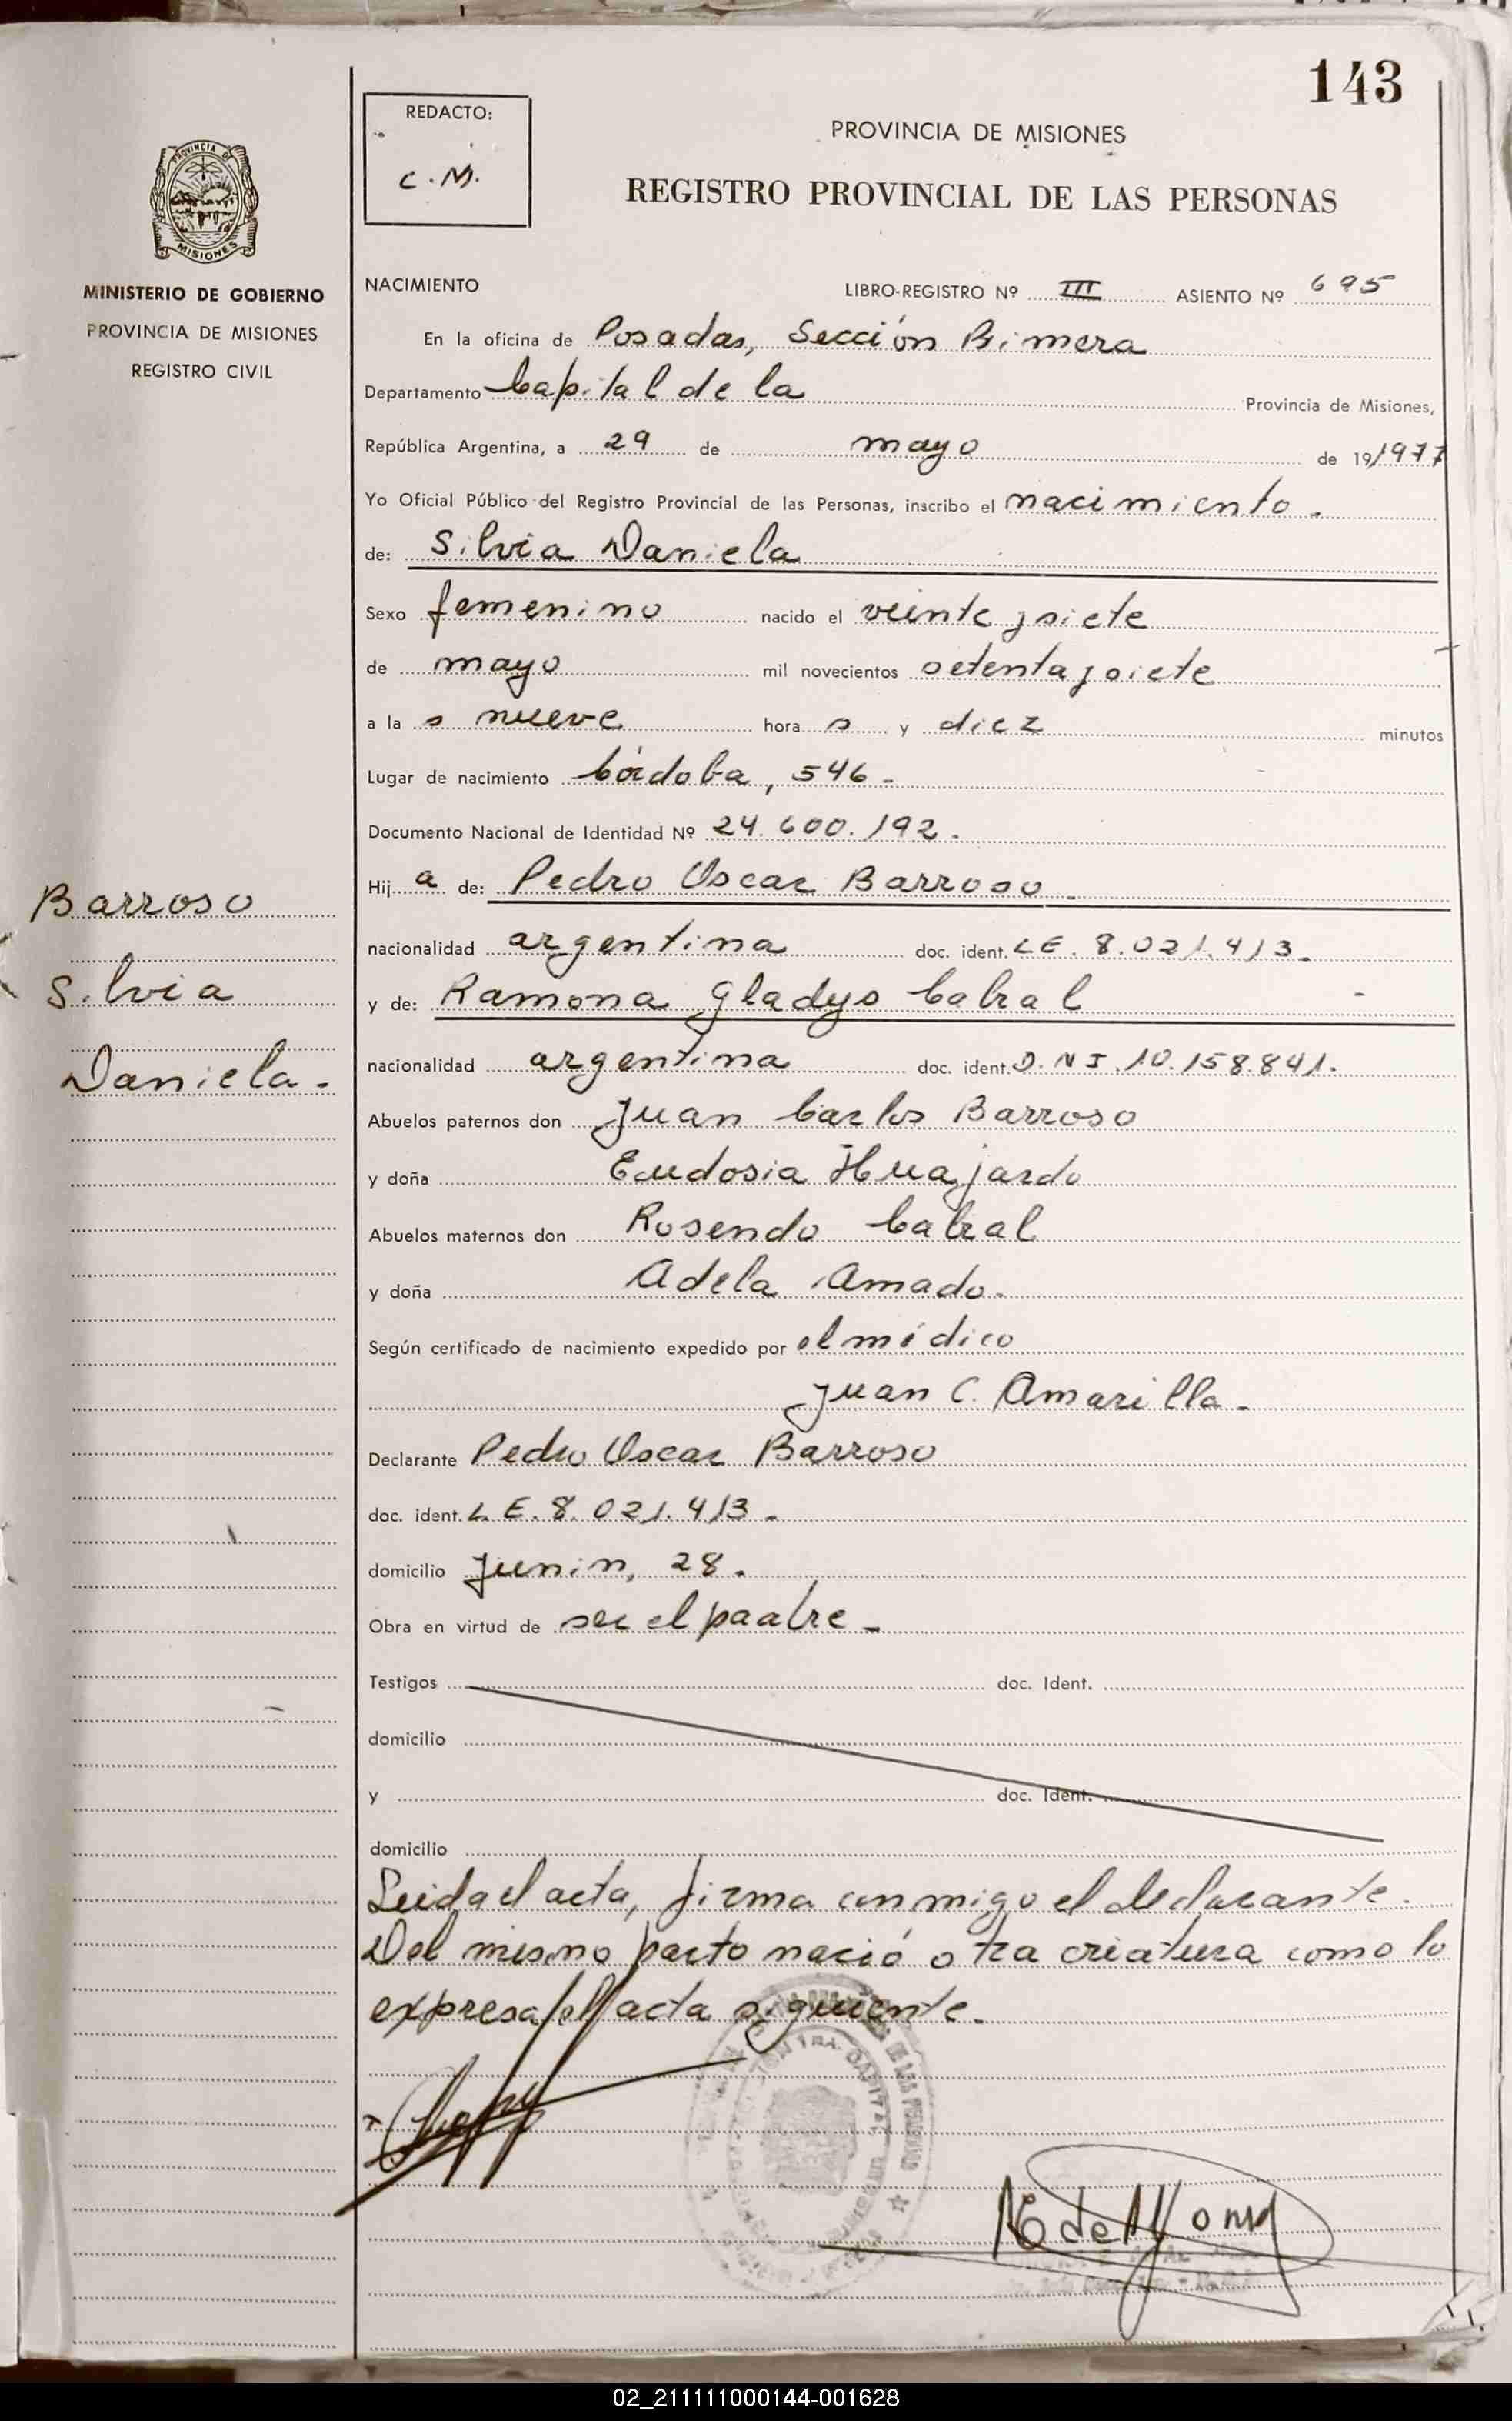 143
REDACTO:
C.M.
PROVINCIA DE MISIONES
REGISTRO PROVINCIAL DE LAS PERSONAS
PROVINCIA DE
MISIONES
MINISTERIO DE GOBIERNO
PROVINCIA DE MISIONES
REGISTRO CIVIL
NACIMIENTO LIBRO-REGISTRO Nº III ASIENTO Nº 695
En la oficina de Posadas, Sección Primera
Departamento Capital de la Provincia de Misiones,
República Argentina, a 29 de mayo de 19/1977
Yo Oficial Público del Registro Provincial de las Personas, inscribo el nacimiento.
de: Silvia Daniela
Sexo femenino nacido el veinte y siete
de mayo mil novecientos setenta y siete
a la s nueve hora s y diez minutos
Lugar de nacimiento Córdoba, 546-
Documento Nacional de Identidad Nº 24.600.192.
Hij a de: Pedro Oscar Barroso
nacionalidad argentina doc. ident. L E. 8.021.413.
y de: Ramona Gladys Cabral
nacionalidad argentina doc. ident. D.N I.10.158.841.
Abuelos paternos don Juan Carlos Barroso
y doña Eudosia Huajardo
Abuelos maternos don Rosendo Cabral
y doña Adela Amado.
Según certificado de nacimiento expedido por el médico
Juan C. Amarilla.
Declarante Pedro Oscar Barroso
doc. ident. L. E. 8.021.413.
domicilio Junin, 28.
Obra en virtud de ser el paadre -
Testigos doc. Ident.
domicilio
y doc. Ident.
domicilio
Leida el acta, firma conmigo el declarante.
Del mismo parto nació otra criatura como lo
expresa el acta siguiente.
Barroso
Silvia
Daniela.
02_211111000144-001628